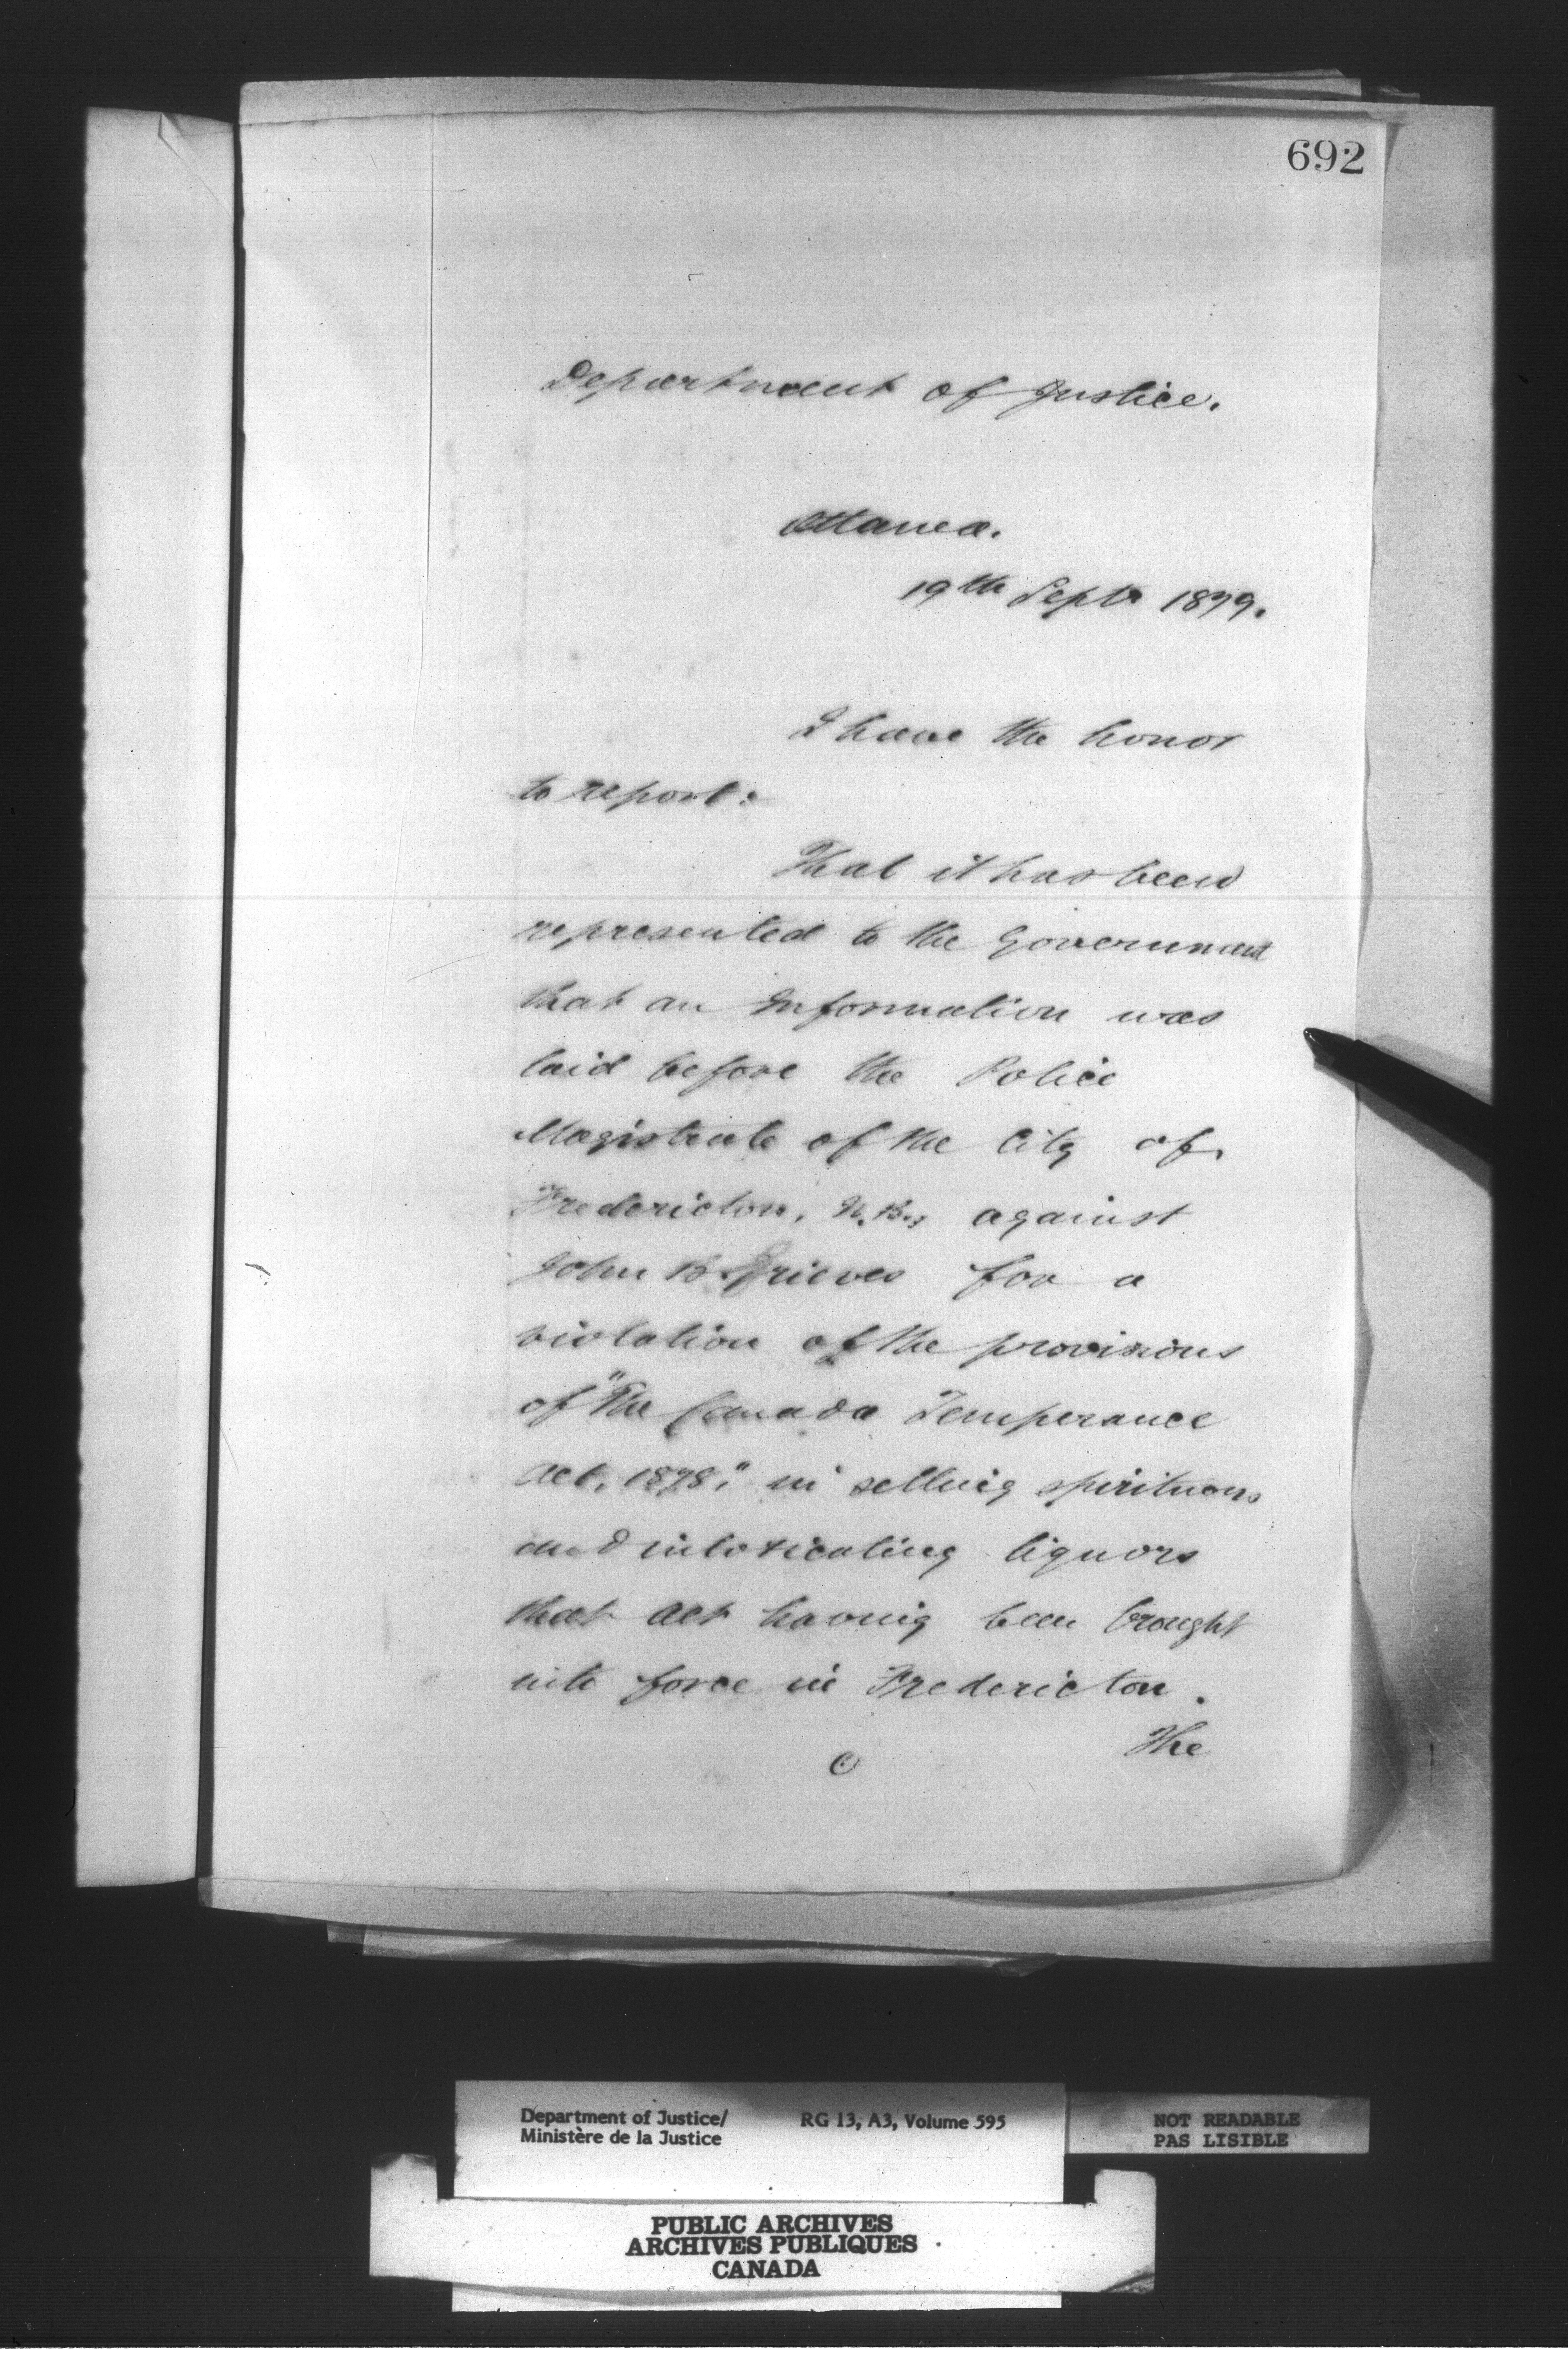 692
Department of Justice.
Ottawa.
19th Septr 1879.
I have the honor
to report:
That it has been
represented to the Government
that an Information was
laid before the Police
Magistrate of the City of
Fredericton, N.B., against
John B. Grieves for a
violation of the provisions
of "The Canada Temperance
Act, 1878," in selling spirituous
and intoxicating liquors
that Act having been brought
into force in Fredericton.
The
Department of Justice/
Ministère de la Justice
RG 13, A3, Volume 595
NOT READABLE
PAS LISIBLE
PUBLIC ARCHIVES
ARCHIVES PUBLIQUES
CANADA